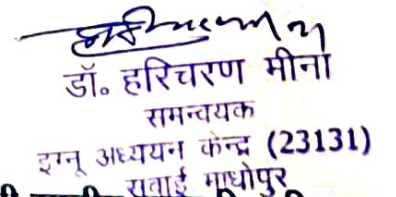 डॉ. हरिचरण मीना
समन्वयक
इग्नू अध्ययन केन्द्र (23131)
सवाई माधोपुर